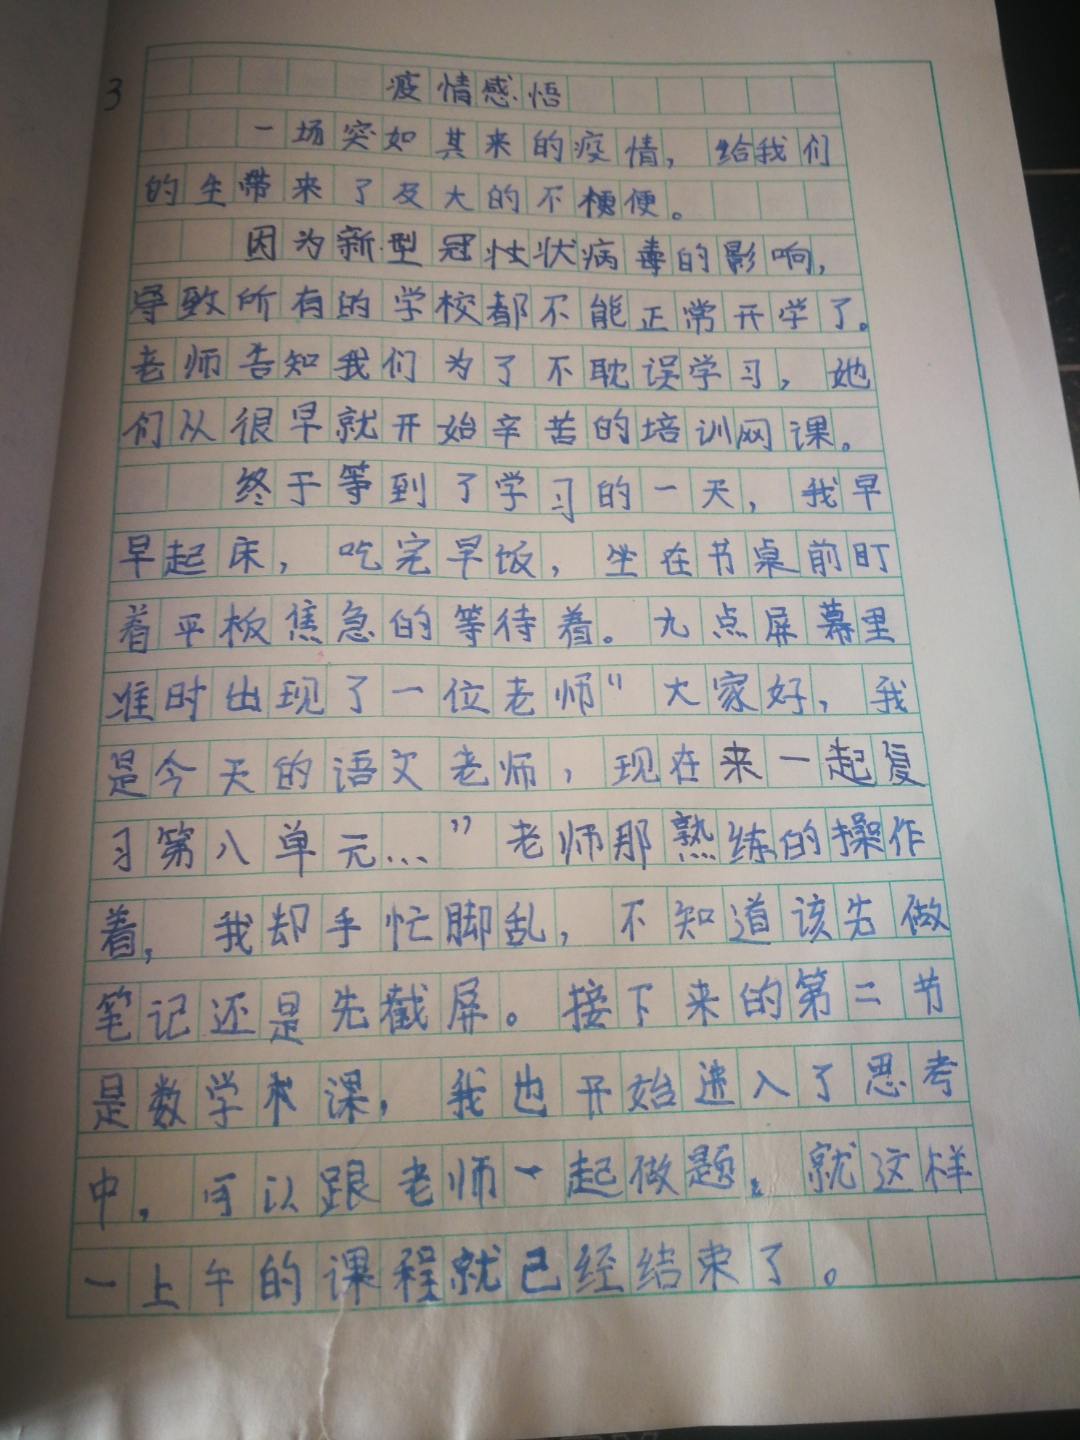 3
疫情感悟
一场突如其来的疫情，给我们
的生带来了及大的不梗便。
因为新型冠壮状病毒的影响，
导致所有的学校都不能正常开学了。
老师告知我们为了不耽误学习，她
们从很早就开始辛苦的培训网课。
终于等到了学习的一天，我早
早起床，吃完早饭，坐在书桌前盯
着平板焦急的等待着。九点屏幕里
准时出现了一位老师“大家好，我
是今天的语文老师，现在来一起复
习第八单元…”老师那熟练的操作
着，我却手忙脚乱，不知道该先做
笔记还是先截屏。接下来的第二节
是数学术课，我也开始进入了思考
中，可以跟老师一起做题。就这样
一上午的课程就已经结束了。